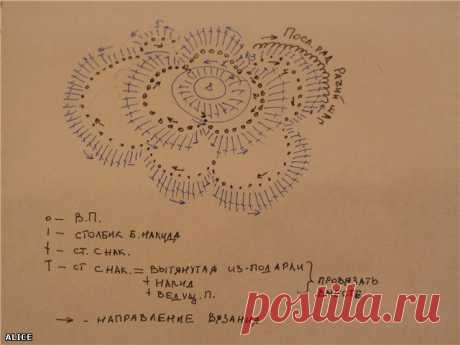 ПОСЛ. РЯД
РАЧИЙ ШАГ
o – В.П.
ı – СТОЛБИК Б. НАКИДА
† – СТ. С НАК.
T – СТ С НАК. = ВЫТЯНУТАЯ ИЗ-ПОД АРКИ
+ НАКИД
+ ВЕДУЩ. П.
ПРОВЯЗАТЬ
ВМЕСТЕ
→ – НАПРАВЛЕНИЕ ВЯЗАНИЯ
postila.ru
ALICE